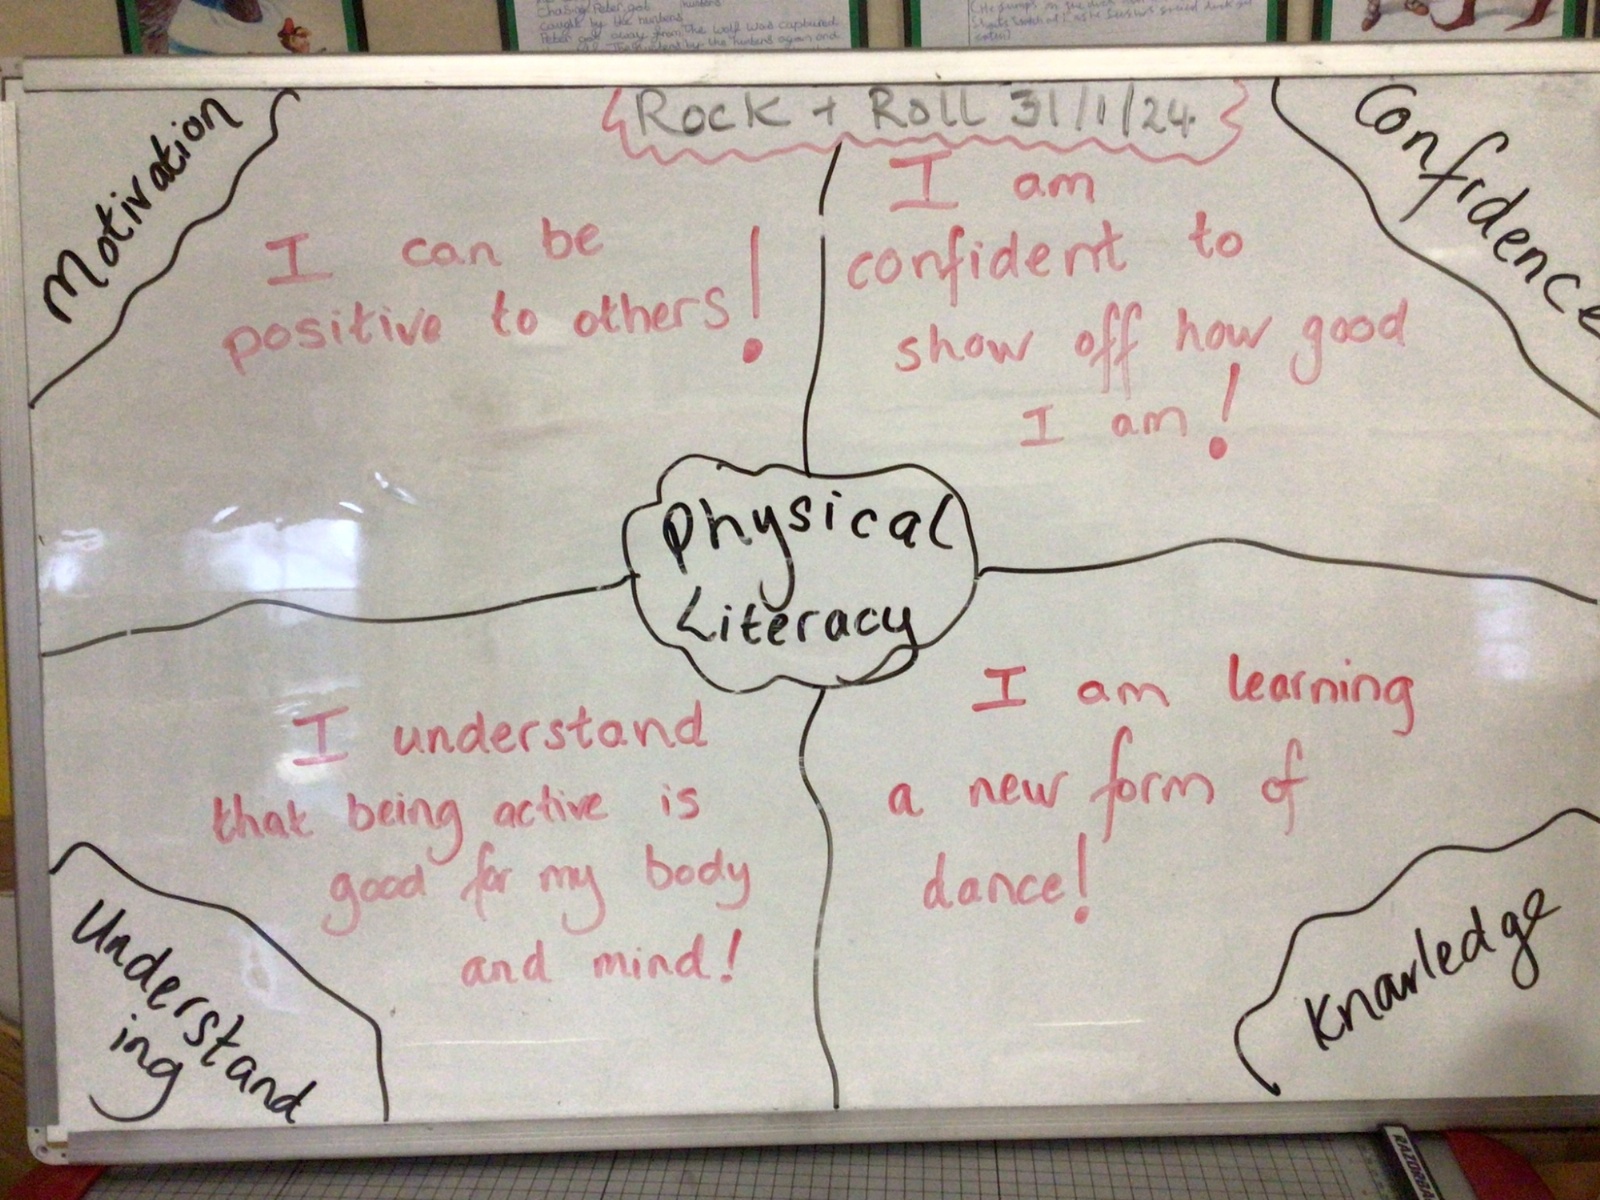 Chasing Peter got
hunters
caught by the hunters
Peter got away from the wolf was captured
by the hunters again and
Rock + Roll 31/1/24
Motivation
I can be
positive to others!
Confidence
I am
confident to
show off how good
I am!
Physical
Literacy
I understand
that being active is
good for my body
and mind!
Understand
ing
I am learning
a new form of
dance!
Knowledge